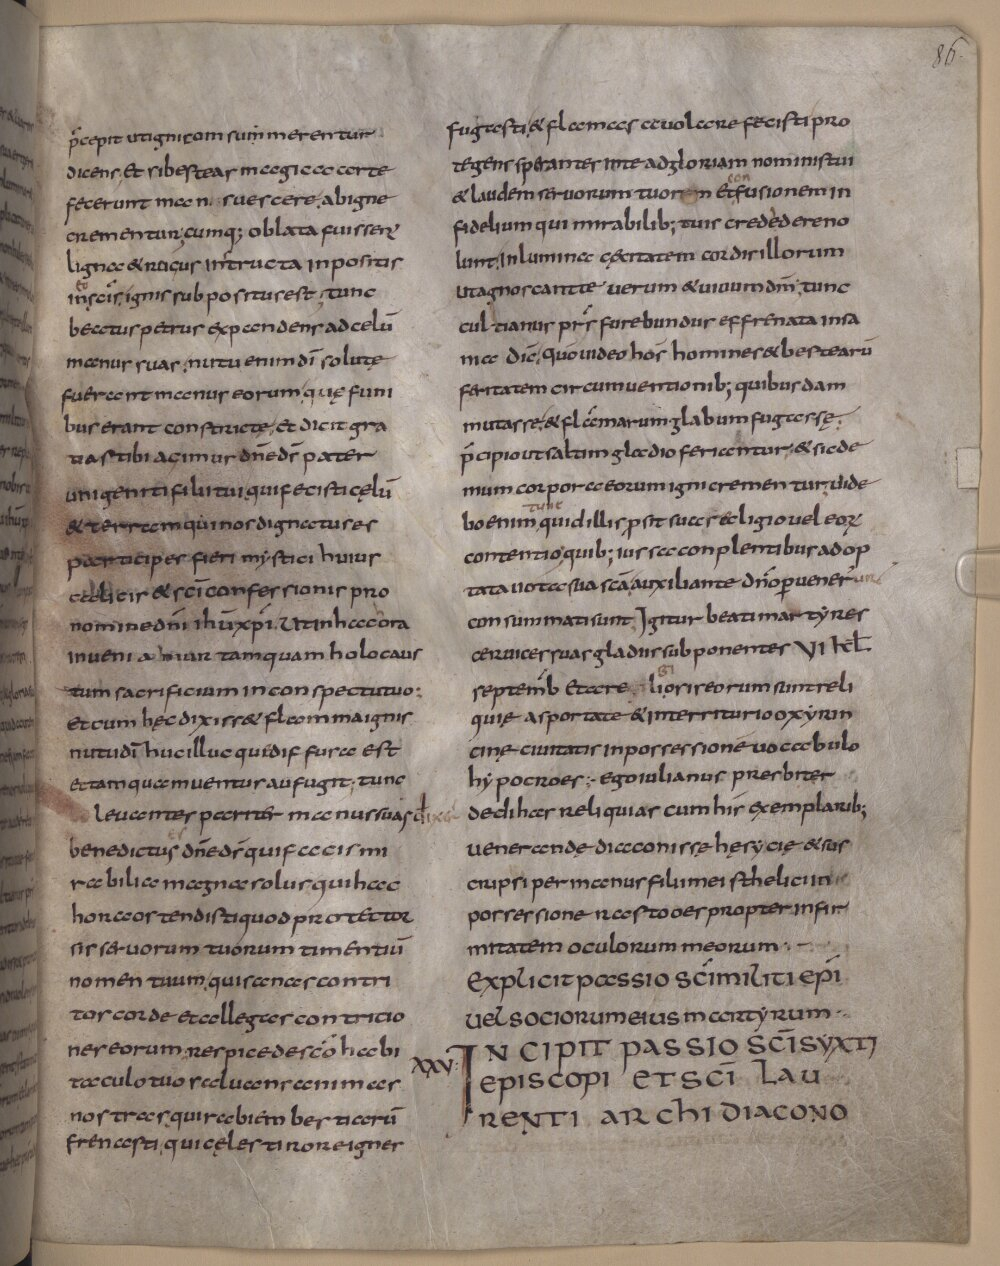 86
p̄cepit ut igni com sum merentur
dicens, Et si besteas magicæ arte
fecerunt man suescere, ab igne
crementur, cumq; oblata fuisser̄
ligna & rogus instructa inpositis
in eo sc̄is, ignis sub positus est, tunc
beatus petrus expandens ad celū
manus suas, nutu enim dī solutę
fuerant manus eorum, quę funi
bus erant constrictę, et dicit gra
tias tibi agimus dn̄e ds̄ pater
unigeniti filii tui, qui fecisti cęlū
& terram qui nos dignatus es
participes fieri mystici huius
calicis & sc̄i confessionis pro
nomine dn̄i ihū xp̄i. Ut in hac ora
inveniamur tamquam holocaus
tum sacrificium in conspectu tuo:
Et cum hęc dixiss& flamma ignis
nutu dī huc illuc quę diffusa est
et tamquam ventus aufugit, tunc
levantes pariter manus suas dixer
benedictus es dn̄e ds̄ qui facis mi
rabilia magna solus qui hac
hora ostendisti quod protector
sis servorum tuorum timentiū
nomen tuum, qui sanas contri
tos corde et alligas contricio
nes eorum, respice de sc̄o habi
taculo tuo salua nos animas
nostras, qui rabiem bestiarū
frenasti, qui cęlesti rore ignes
fugasti, & flammas evolare fecisti pro
tegens sperantes in te ad gloriam nominis tui
& laudem servorum tuorem et con fusionem in
fidelium qui mirabilib; tuis credėdere no
lunt, Inlumina cęcitatem cordis illorum
ut agnoscant te verum & vivum dm̄, tunc
culcianus prs̄ furebundus effrenata insa
nia dic̄, quo video hos homines & bestearū
feritatem circumventionib; quibusdam
mutasse, & flāmarum glabum fugasse,
p̄cipio ut saltim gladio feriantur, & sic de
mum corpora eorum igni crementur, vide
bo enim, tunc quid illis p̄sit sua religio vel eor̄
contentio, quib; iussa conplentibus adop
tata vota sua sc̄a auxiliante dn̄o pvener̄unt
consummati sunt, Igitur beati martyres
cervices suas gladiis subponentes VI kl̄
septemb̄ Et
quię asportatę & interriturio oxyrin
cinę civitatis in possessione vocabulo
hypocroes :- ego iulianus presbiter
dedi has reliquias cum his exemplarib;
venerandę diaconissę hęsycię & sus
cripsi per manus filii mei sthelicii in
possessione rastooes propter infir
mitatem oculorum meorum :-
Explicit passio sc̄i militi epī
vel sociorum eius martyrum :-
XXV: IN CIPIT PASSIO SC̄I SYXTI
EPISCOPI ET SC̄I LAU
RENTI ARCHIDIACONO